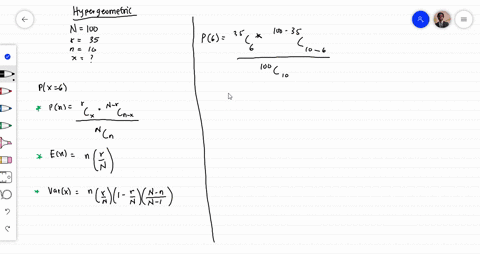 Hypergeometric
N = 100
r = 35
n = 10
x = ?
P(x=6)
* P(x) = ʳCₓ * ᴺ⁻ʳCₙ₋ₓ / ᴺCₙ
* E(x) = n (r/N)
* Var(x) = n (r/N) (1 - r/N) ((N-n)/(N-1))
P(6) = ³⁵C₆ * ¹⁰⁰⁻³⁵C₁₀₋₆ / ¹⁰⁰C₁₀